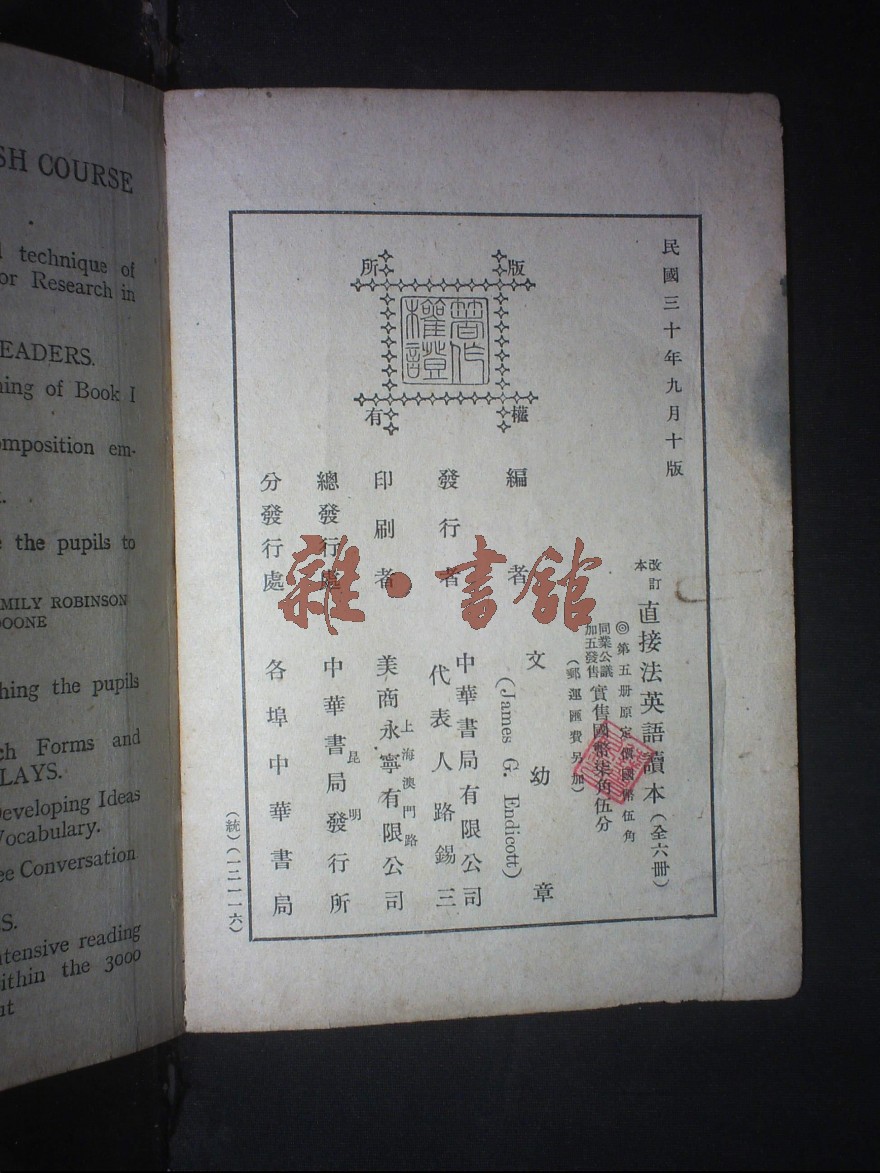 SH COURSE
technique of
or Research in
EADERS.
ning of Book I
omposition em-
the pupils to
MILY ROBINSON
DOONE
hing the pupils
ch Forms and
LAYS.
Developing Ideas
Vocabulary.
ee Conversation
S.
ntensive reading
ithin the 3000
民國三十年九月十版
版權所有
著作權證
改訂本 直接法英語讀本(全六冊)
◎第五册原定價國幣伍角
同業公議加五發售 實售國幣柒角伍分
(郵運匯費另加)
編者 文幼章
(James G. Endicott)
發行者 中華書局有限公司
代表人路錫三
印刷者 上海澳門路
美商永寧有限公司
總發行處 昆明
中華書局發行所
分發行處 各埠中華書局
(統)(一二一一六)
雜·書館